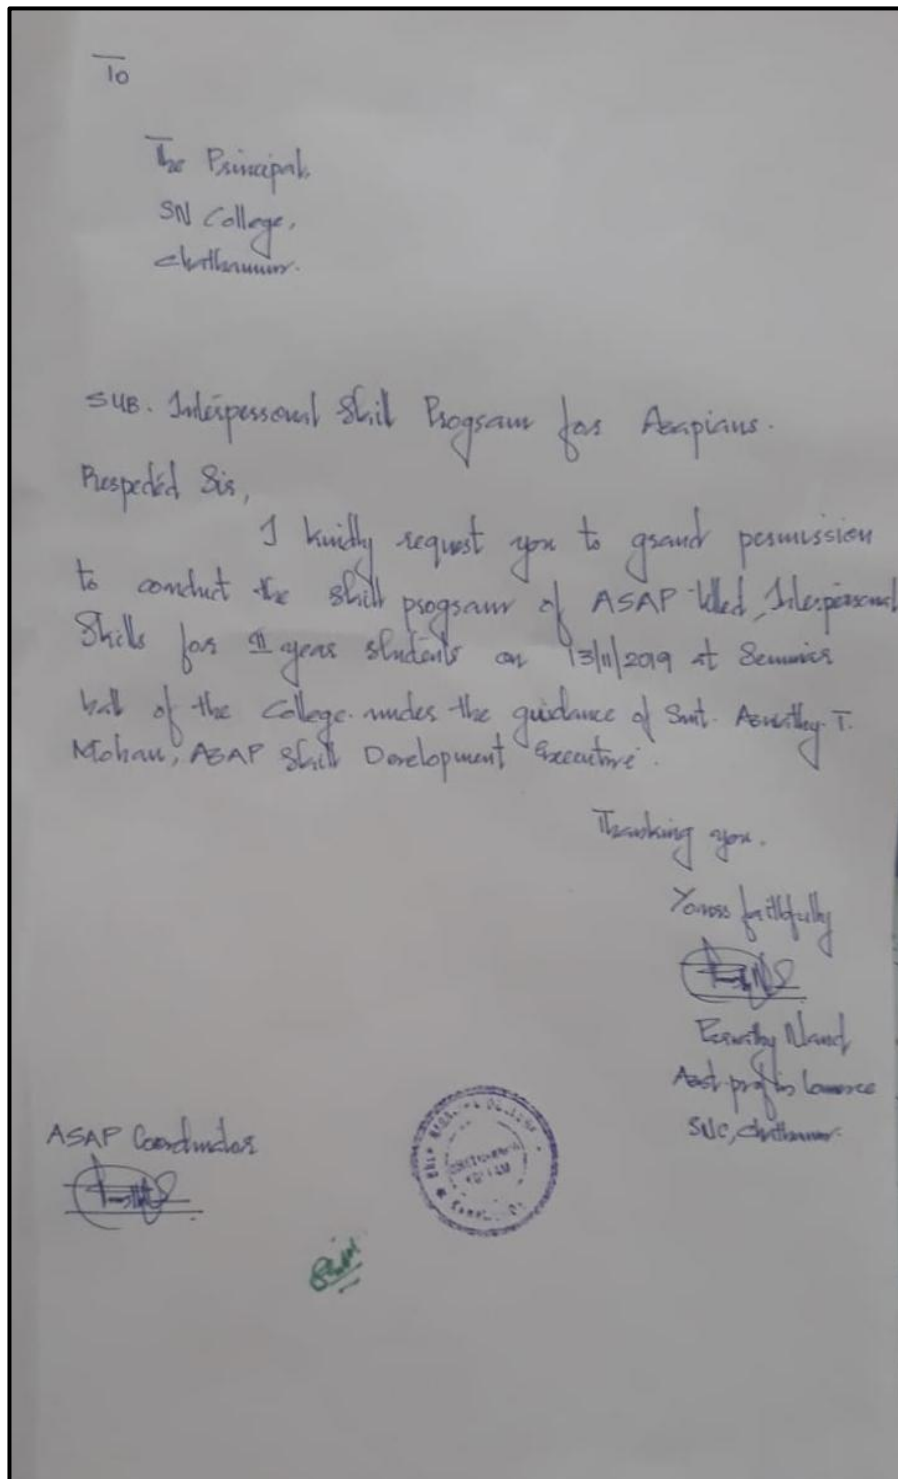 To
The Principal,
SN College,
Chathannur.
SUB. Interpersonal Skill Program for Asapians.
Respected Sir,
I kindly request you to grand permission
to conduct the skill program of ASAP titled, Interpersonal
Skills for II year students on 13/11/2019 at Seminar
hall of the College under the guidance of Smt. Aswathy. T.
Mohan, ASAP Skill Development Executive.
Thanking you.
Yours faithfully
Nand
Asst. prof in Commerce
SNC, Chathannur.
ASAP Coordinator